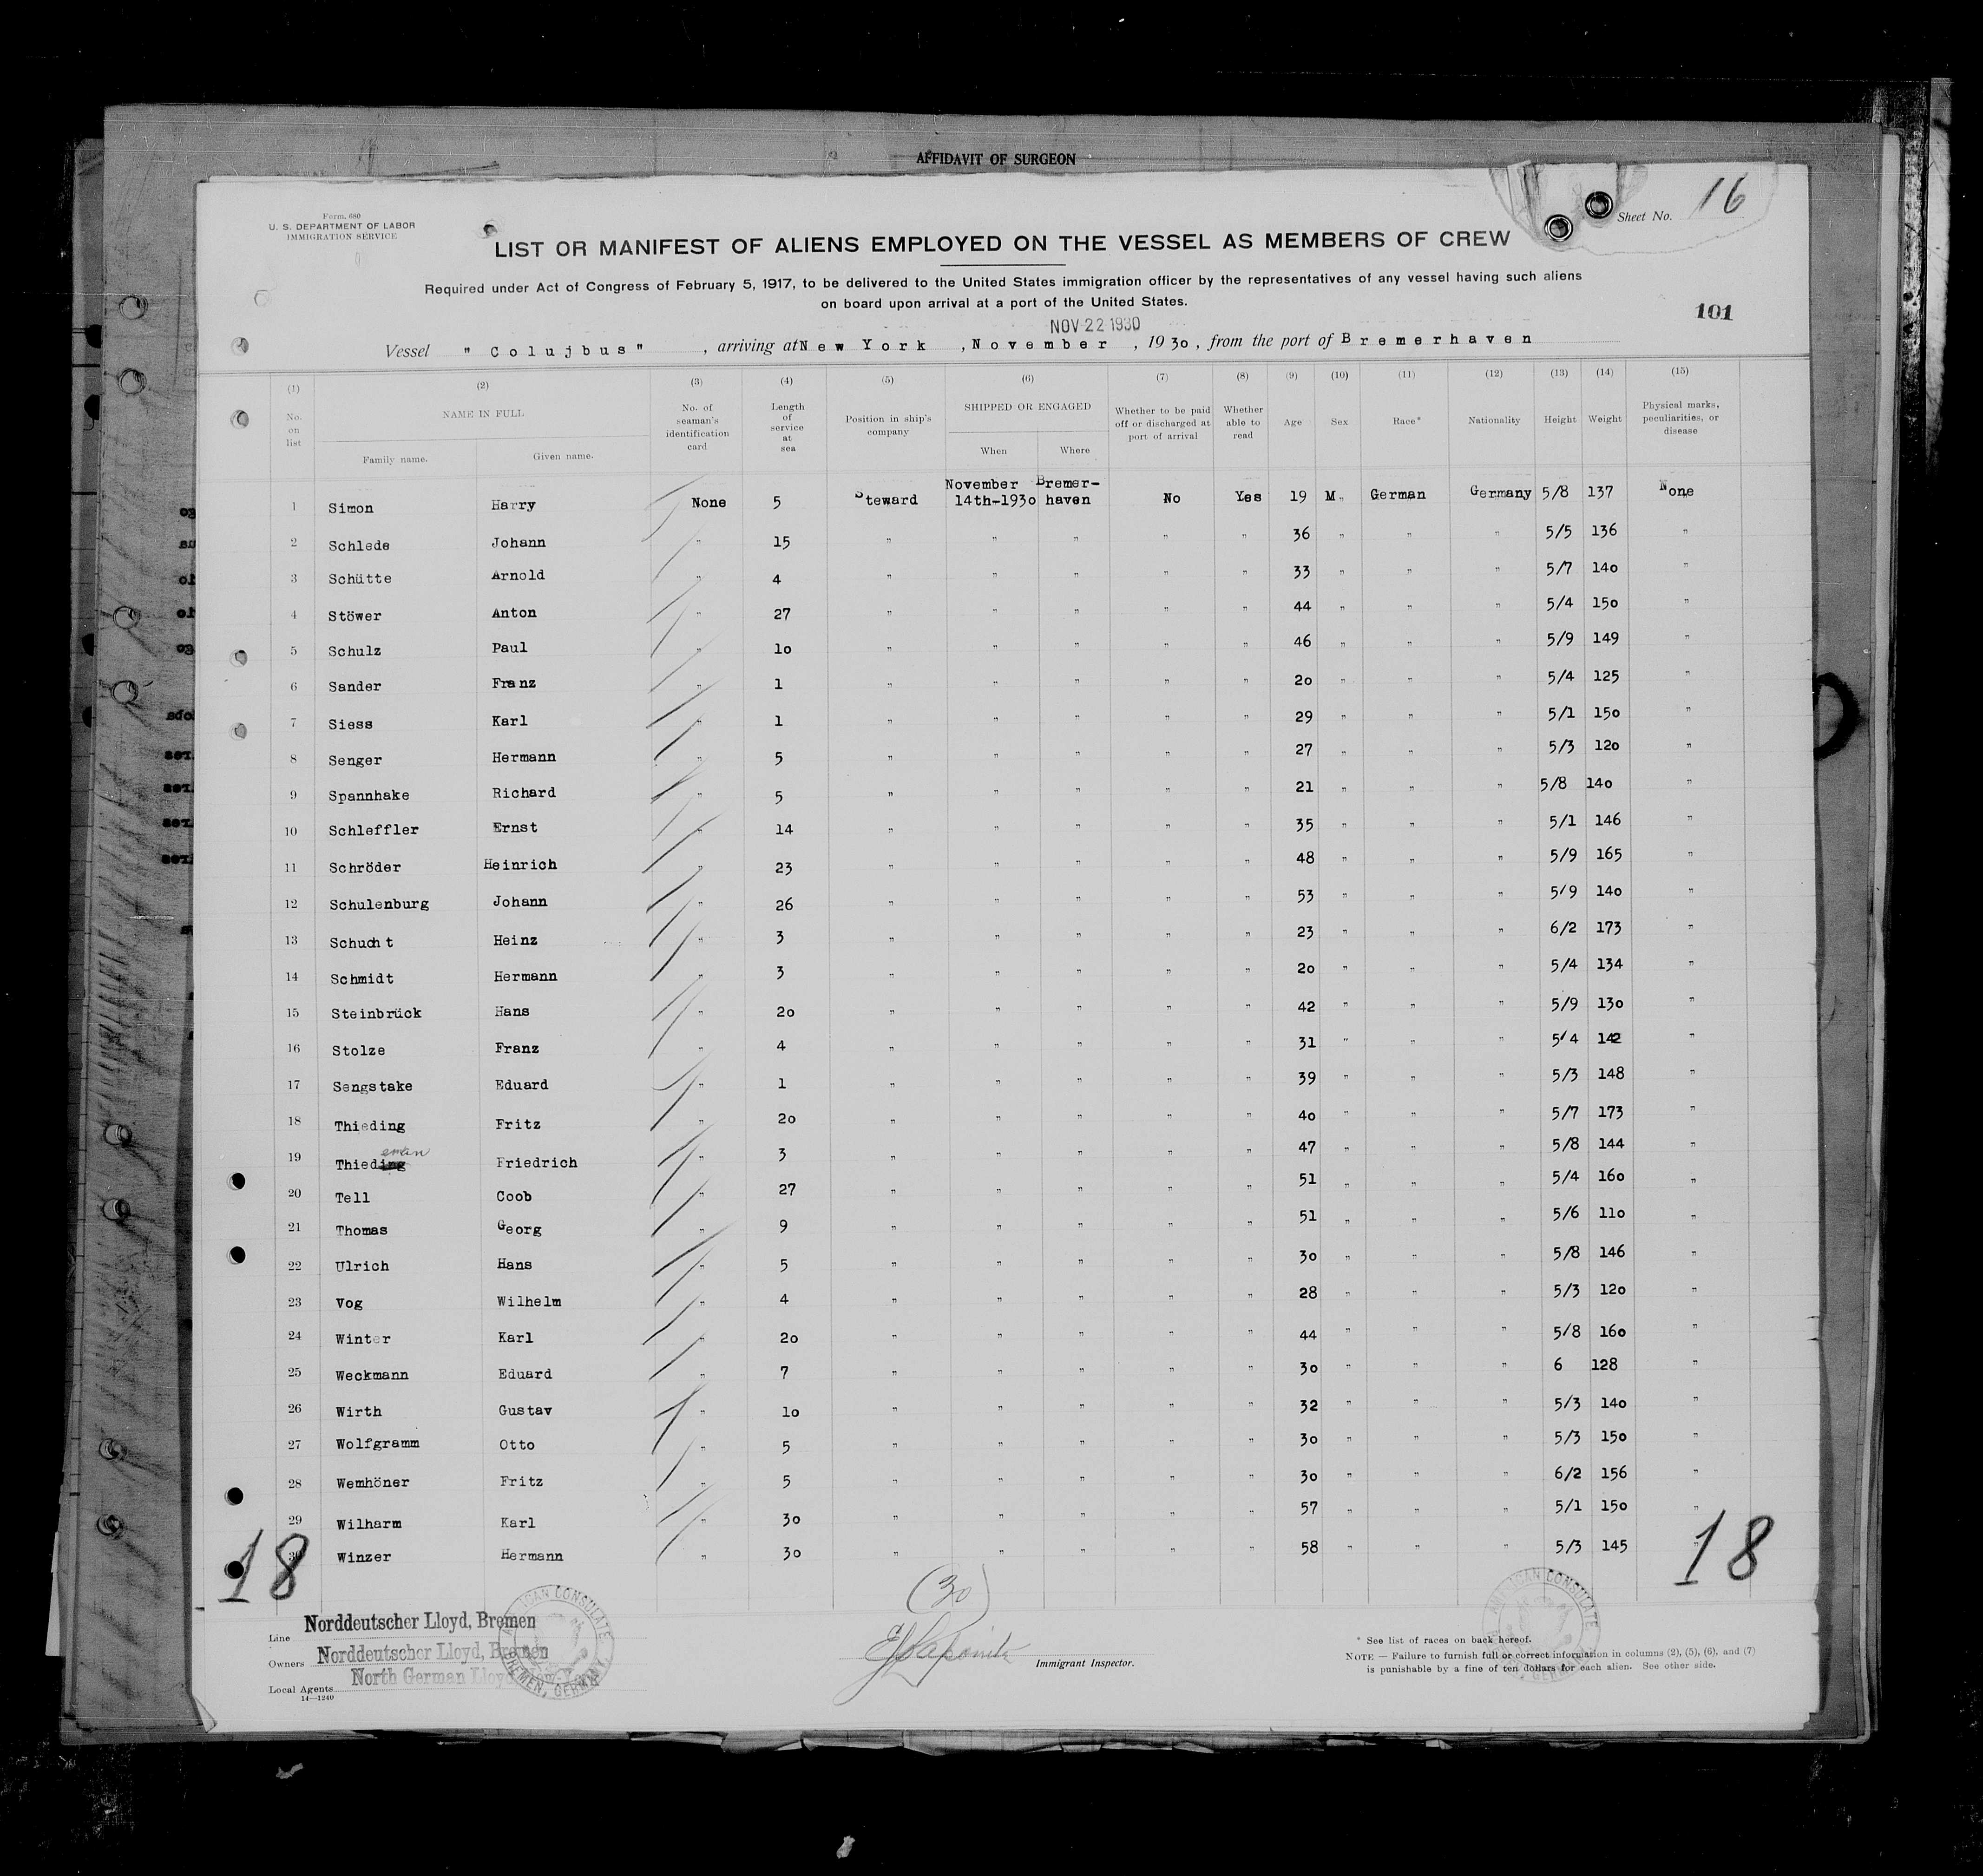 AFFIDAVIT OF SURGEON
Form. 680
U. S. DEPARTMENT OF LABOR
IMMIGRATION SERVICE
Sheet No. 16
LIST OR MANIFEST OF ALIENS EMPLOYED ON THE VESSEL AS MEMBERS OF CREW
Required under Act of Congress of February 5, 1917, to be delivered to the United States immigration officer by the representatives of any vessel having such aliens
on board upon arrival at a port of the United States.
101
NOV 22 1930
Vessel "Colujbus", arriving at New York, November, 1930, from the port of Bremerhaven
(1) No. on list (2) NAME IN FULL Family name. Given name. (3) No. of seaman's identification card (4) Length of service at sea (5) Position in ship's company (6) SHIPPED OR ENGAGED When Where (7) Whether to be paid off or discharged at port of arrival (8) Whether able to read (9) Age (10) Sex (11) Race* (12) Nationality (13) Height (14) Weight (15) Physical marks, peculiarities, or disease
1 Simon Harry None 5 Steward November 14th-1930 Bremer-haven No Yes 19 M. German Germany 5/8 137 None
2 Schlede Johann " 15 " " " " " 36 " " " 5/5 136 "
3 Schütte Arnold " 4 " " " " " 33 " " " 5/7 140 "
4 Stöwer Anton " 27 " " " " " 44 " " " 5/4 150 "
5 Schulz Paul " 10 " " " " " 46 " " " 5/9 149 "
6 Sander Franz " 1 " " " " " 20 " " " 5/4 125 "
7 Siess Karl " 1 " " " " " 29 " " " 5/1 150 "
8 Senger Hermann " 5 " " " " " 27 " " " 5/3 120 "
9 Spannhake Richard " 5 " " " " " 21 " " " 5/8 140 "
10 Schleffler Ernst " 14 " " " " " 35 " " " 5/1 146 "
11 Schröder Heinrich " 23 " " " " " 48 " " " 5/9 165 "
12 Schulenburg Johann " 26 " " " " " 53 " " " 5/9 140 "
13 Schucht Heinz " 3 " " " " " 23 " " " 6/2 173 "
14 Schmidt Hermann " 3 " " " " " 20 " " " 5/4 134 "
15 Steinbrück Hans " 20 " " " " " 42 " " " 5/9 130 "
16 Stolze Franz " 4 " " " " " 31 " " " 5/4 142 "
17 Sengstake Eduard " 1 " " " " " 39 " " " 5/3 148 "
18 Thieding Fritz " 20 " " " " " 40 " " " 5/7 173 "
19 Thieding eman Friedrich " 3 " " " " " 47 " " " 5/8 144 "
20 Tell Coob " 27 " " " " " 51 " " " 5/4 160 "
21 Thomas Georg " 9 " " " " " 51 " " " 5/6 110 "
22 Ulrich Hans " 5 " " " " " 30 " " " 5/8 146 "
23 Vog Wilhelm " 4 " " " " " 28 " " " 5/3 120 "
24 Winter Karl " 20 " " " " " 44 " " " 5/8 160 "
25 Weckmann Eduard " 7 " " " " " 30 " " " 6 128 "
26 Wirth Gustav " 10 " " " " " 32 " " " 5/3 140 "
27 Wolfgramm Otto " 5 " " " " " 30 " " " 5/3 150 "
28 Wemhöner Fritz " 5 " " " " " 30 " " " 6/2 156 "
29 Wilharm Karl " 30 " " " " " 57 " " " 5/1 150 "
30 Winzer Hermann " 30 " " " " " 58 " " " 5/3 145 "
18 18
(30)
Line Norddeutscher Lloyd, Bremen
Owners Norddeutscher Lloyd, Bremen
Local Agents North German Lloyd New-York
14—1240
AMERICAN CONSULATE BREMEN, GERMANY
Immigrant Inspector.
AMERICAN CONSULATE BREMEN, GERMANY
* See list of races on back hereof.
NOTE — Failure to furnish full or correct information in columns (2), (5), (6), and (7)
is punishable by a fine of ten dollars for each alien. See other side.